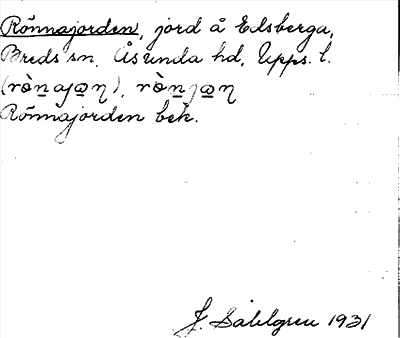 Rönnajorden, jord å Edsberga,
Breds sn, Åsunda hd, Upps. l.
Rönnajorden bek.
J. Sahlgren 1931